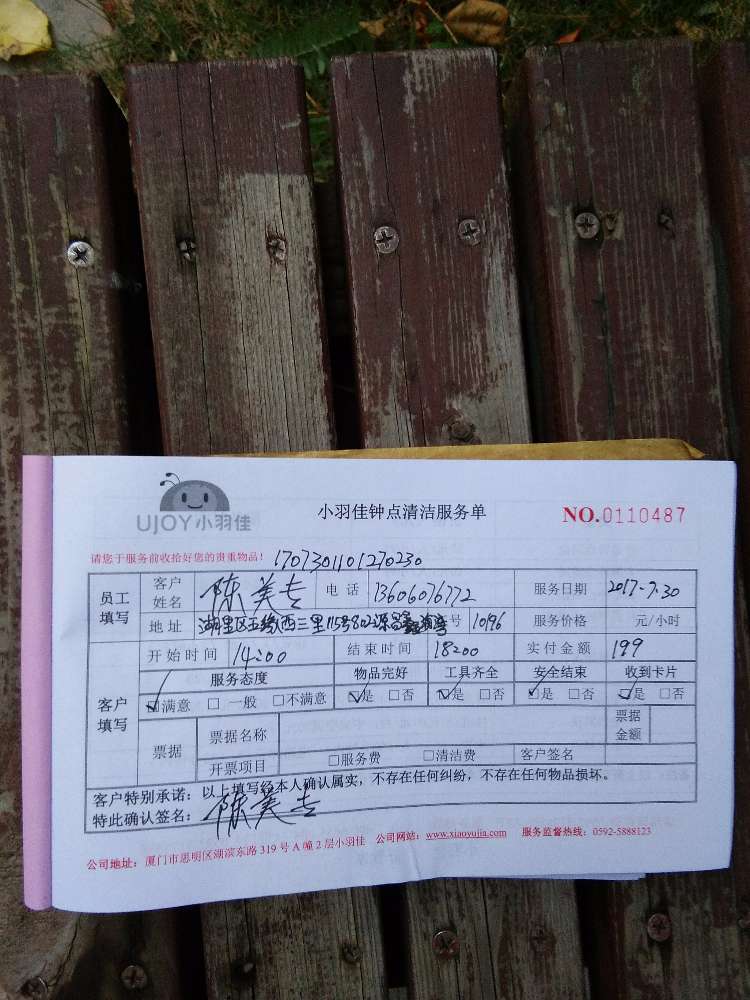 UJOY小羽佳 小羽佳钟点清洁服务单 NO.0110487
请您于服务前收拾好您的贵重物品! 1707301101270230
员工填写 客户姓名 陈美专 电话 13606076772 服务日期 2017-7.30
地址 湖里区五缘西三里115号802源昌 号 1096 服务价格 元/小时
客户填写 开始时间 14:00 结束时间 18:00 实付金额 199
服务态度 物品完好 工具齐全 安全结束 收到卡片
☑满意 □一般 □不满意 ☑是 □否 ☑是 □否 ☑是 □否 ☑是 □否
票据 票据名称 票据金额
开票项目 □服务费 □清洁费 客户签名
客户特别承诺：以上填写经本人确认属实，不存在任何纠纷，不存在任何物品损坏。
特此确认签名： 陈美专
公司地址：厦门市思明区湖滨东路 319 号 A 幢 2 层小羽佳 公司网站：www.xiaoyujia.com 服务监督热线：0592-5888123